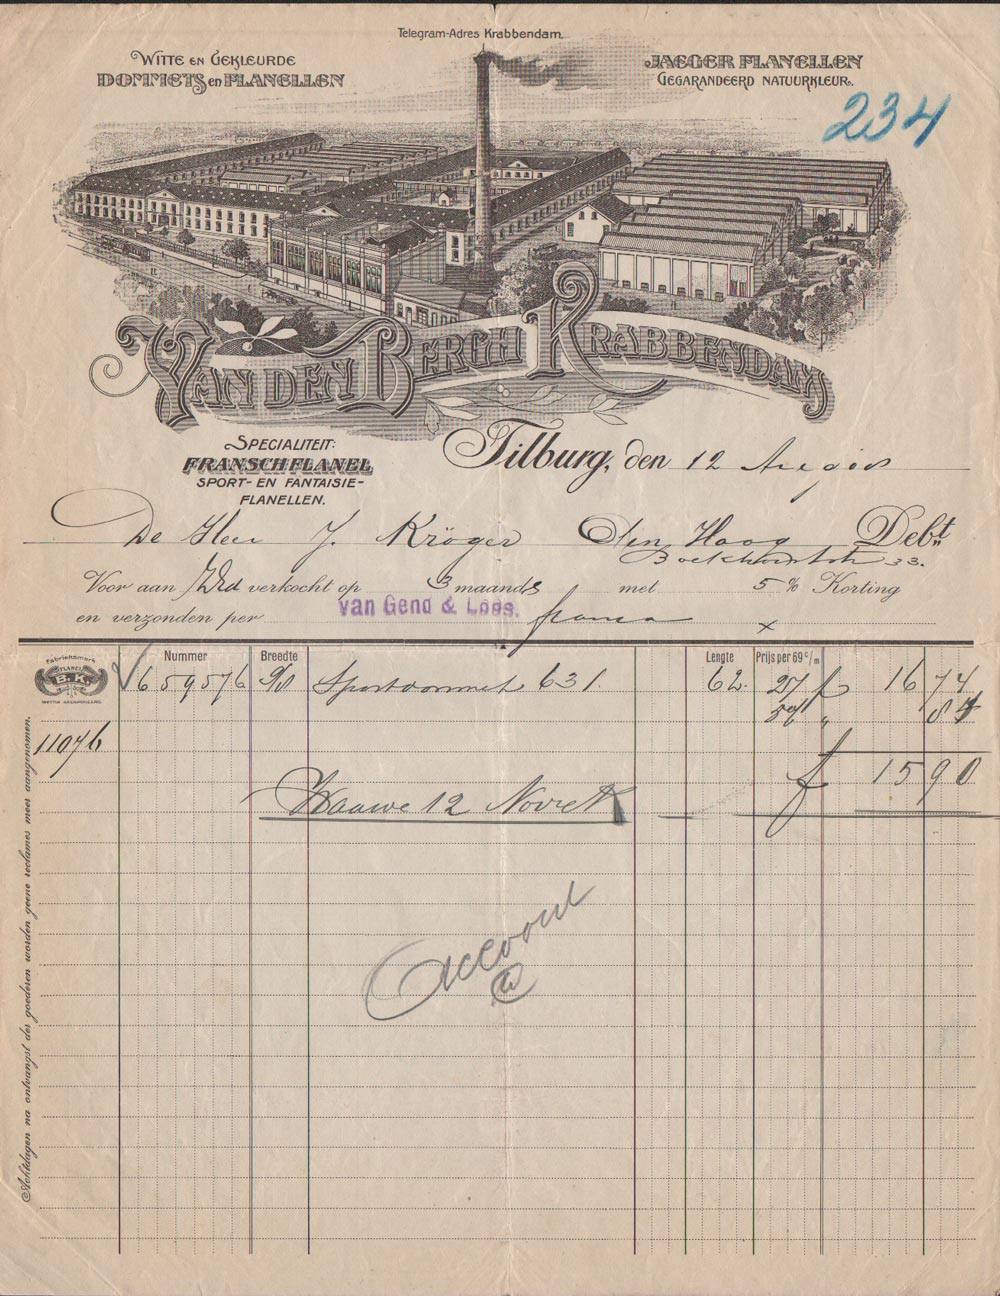 Telegram-Adres Krabbendam.
Witte en Gekleurde
Domiets en Flanellen
Jaeger Flanellen
Gegarandeerd natuurkleur.
234
Van den Bergh Krabbendam
Specialiteit:
Franschflanel
Sport- en Fantaisie-
Flanellen.
Tilburg, den 12 Aug
De Heer J. Kröger Den Haag Debt.
Boekhorststr 33.
Voor aan UEd verkocht op 3 maands met 5 % Korting
van Gend & Loos.
en verzonden per franco x
Fabrieksmerk
Flanel
B.K.
Nummer Breedte Lengte Prijs per 69 c/m
659576 Sportdommet 631. 62. 27 f 16 74
5% " 84
11076
f 15 90
12 Nov
Accoord
Achtdagen na ontvangst der goederen worden geene reclames meer aangenomen.